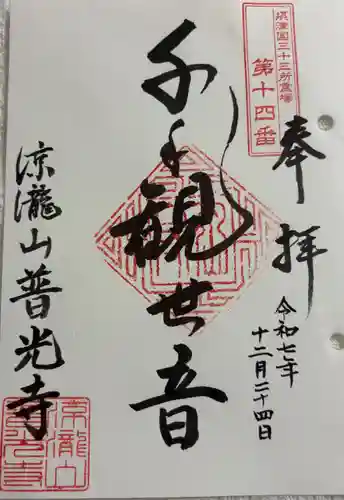 摂津国三十三所霊場
第十四番
奉拝
令和七年
十二月二十四日
千手観世音
涼瀧山普光寺
涼瀧山
普光寺